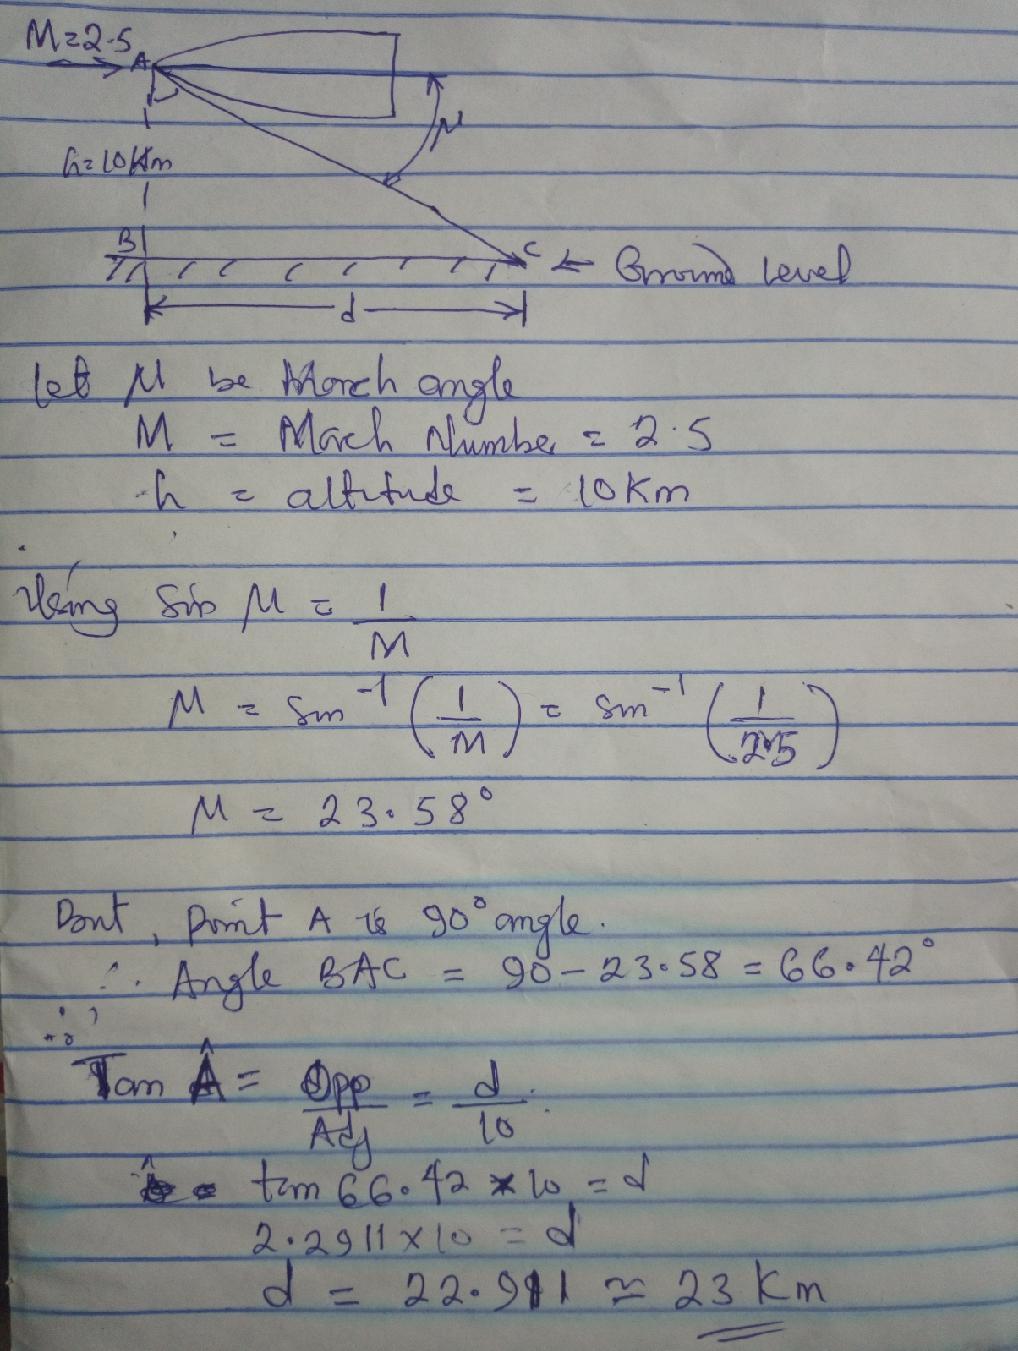 M=2.5
A
μ
h=10km
B
C ← Ground level
d
let μ be March angle
M = Mach Number = 2.5
h = altitude = 10km
Using Sin μ = 1/M
μ = Sin⁻¹ (1/M) = Sin⁻¹ (1/2.5)
μ = 23.58°
But, point A is 90° angle.
∴ Angle BAC = 90 - 23.58 = 66.42°
Tan Â = Opp/Adj = d/10
tan 66.42 × 10 = d
2.2911 × 10 = d
d = 22.911 ≃ 23 km